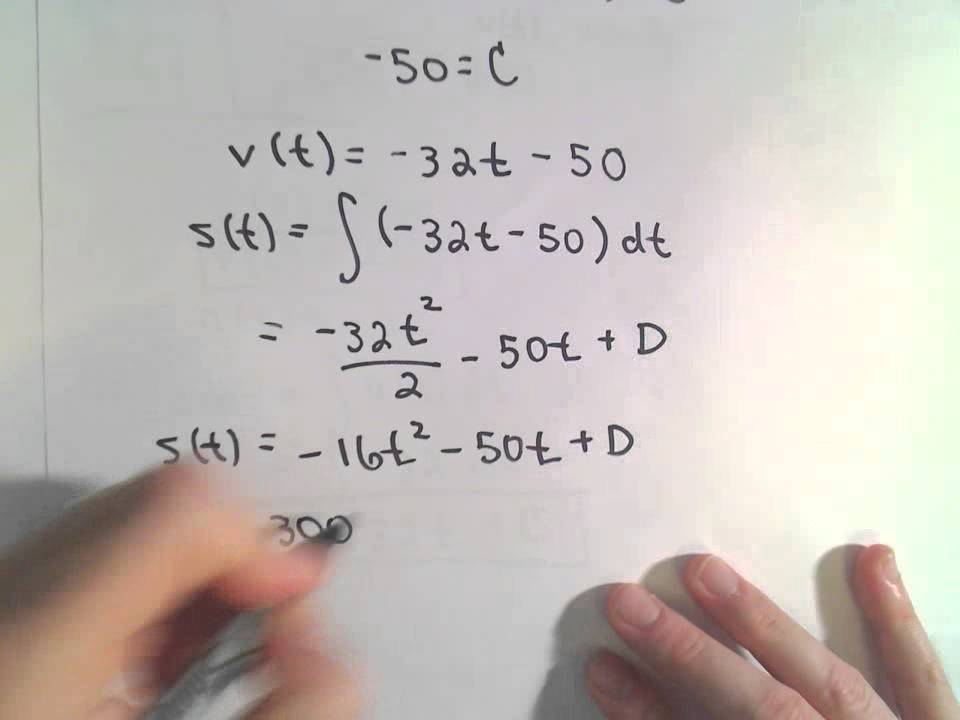 -50 = C
v(t) = -32t - 50
s(t) = ∫ (-32t - 50) dt
= -32t²/2 - 50t + D
s(t) = -16t² - 50t + D
300